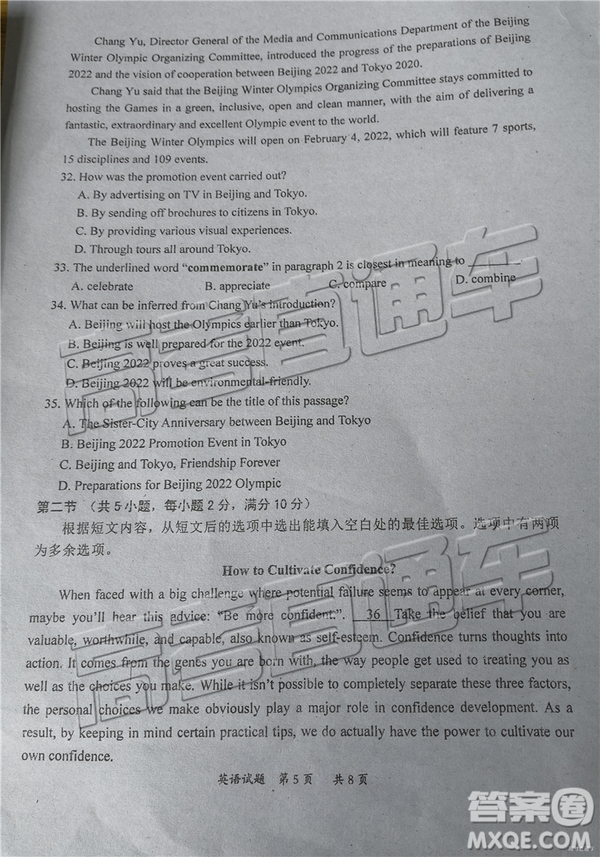 Chang Yu, Director General of the Media and Communications Department of the Beijing
Winter Olympic Organizing Committee, introduced the progress of the preparations of Beijing
2022 and the vision of cooperation between Beijing 2022 and Tokyo 2020.
Chang Yu said that the Beijing Winter Olympics Organizing Committee stays committed to
hosting the Games in a green, inclusive, open and clean manner, with the aim of delivering a
fantastic, extraordinary and excellent Olympic event to the world.
The Beijing Winter Olympics will open on February 4, 2022, which will feature 7 sports,
15 disciplines and 109 events.
32. How was the promotion event carried out?
A. By advertising on TV in Beijing and Tokyo.
B. By sending off brochures to citizens in Tokyo.
C. By providing various visual experiences.
D. Through tours all around Tokyo.
33. The underlined word “commemorate” in paragraph 2 is closest in meaning to ________.
A. celebrate B. appreciate C. compare D. combine
34. What can be inferred from Chang Yu's introduction?
A. Beijing will host the Olympics earlier than Tokyo.
B. Beijing is well prepared for the 2022 event.
C. Beijing 2022 proves a great success.
D. Beijing 2022 will be environmental-friendly.
35. Which of the following can be the title of this passage?
A. The Sister-City Anniversary between Beijing and Tokyo
B. Beijing 2022 Promotion Event in Tokyo
C. Beijing and Tokyo, Friendship Forever
D. Preparations for Beijing 2022 Olympic
第二节 (共5小题，每小题2分，满分10分)
根据短文内容，从短文后的选项中选出能填入空白处的最佳选项。选项中有两项
为多余选项。
How to Cultivate Confidence?
When faced with a big challenge where potential failure seems to appear at every corner,
maybe you'll hear this advice: “Be more confident.”. __36__ Take the belief that you are
valuable, worthwhile, and capable, also known as self-esteem. Confidence turns thoughts into
action. It comes from the genes you are born with, the way people get used to treating you as
well as the choices you make. While it isn't possible to completely separate these three factors,
the personal choices we make obviously play a major role in confidence development. As a
result, by keeping in mind certain practical tips, we do actually have the power to cultivate our
own confidence.
英语试题 第5页 共8页
高考直通车
高考直通车
答案圈
MXQE.COM